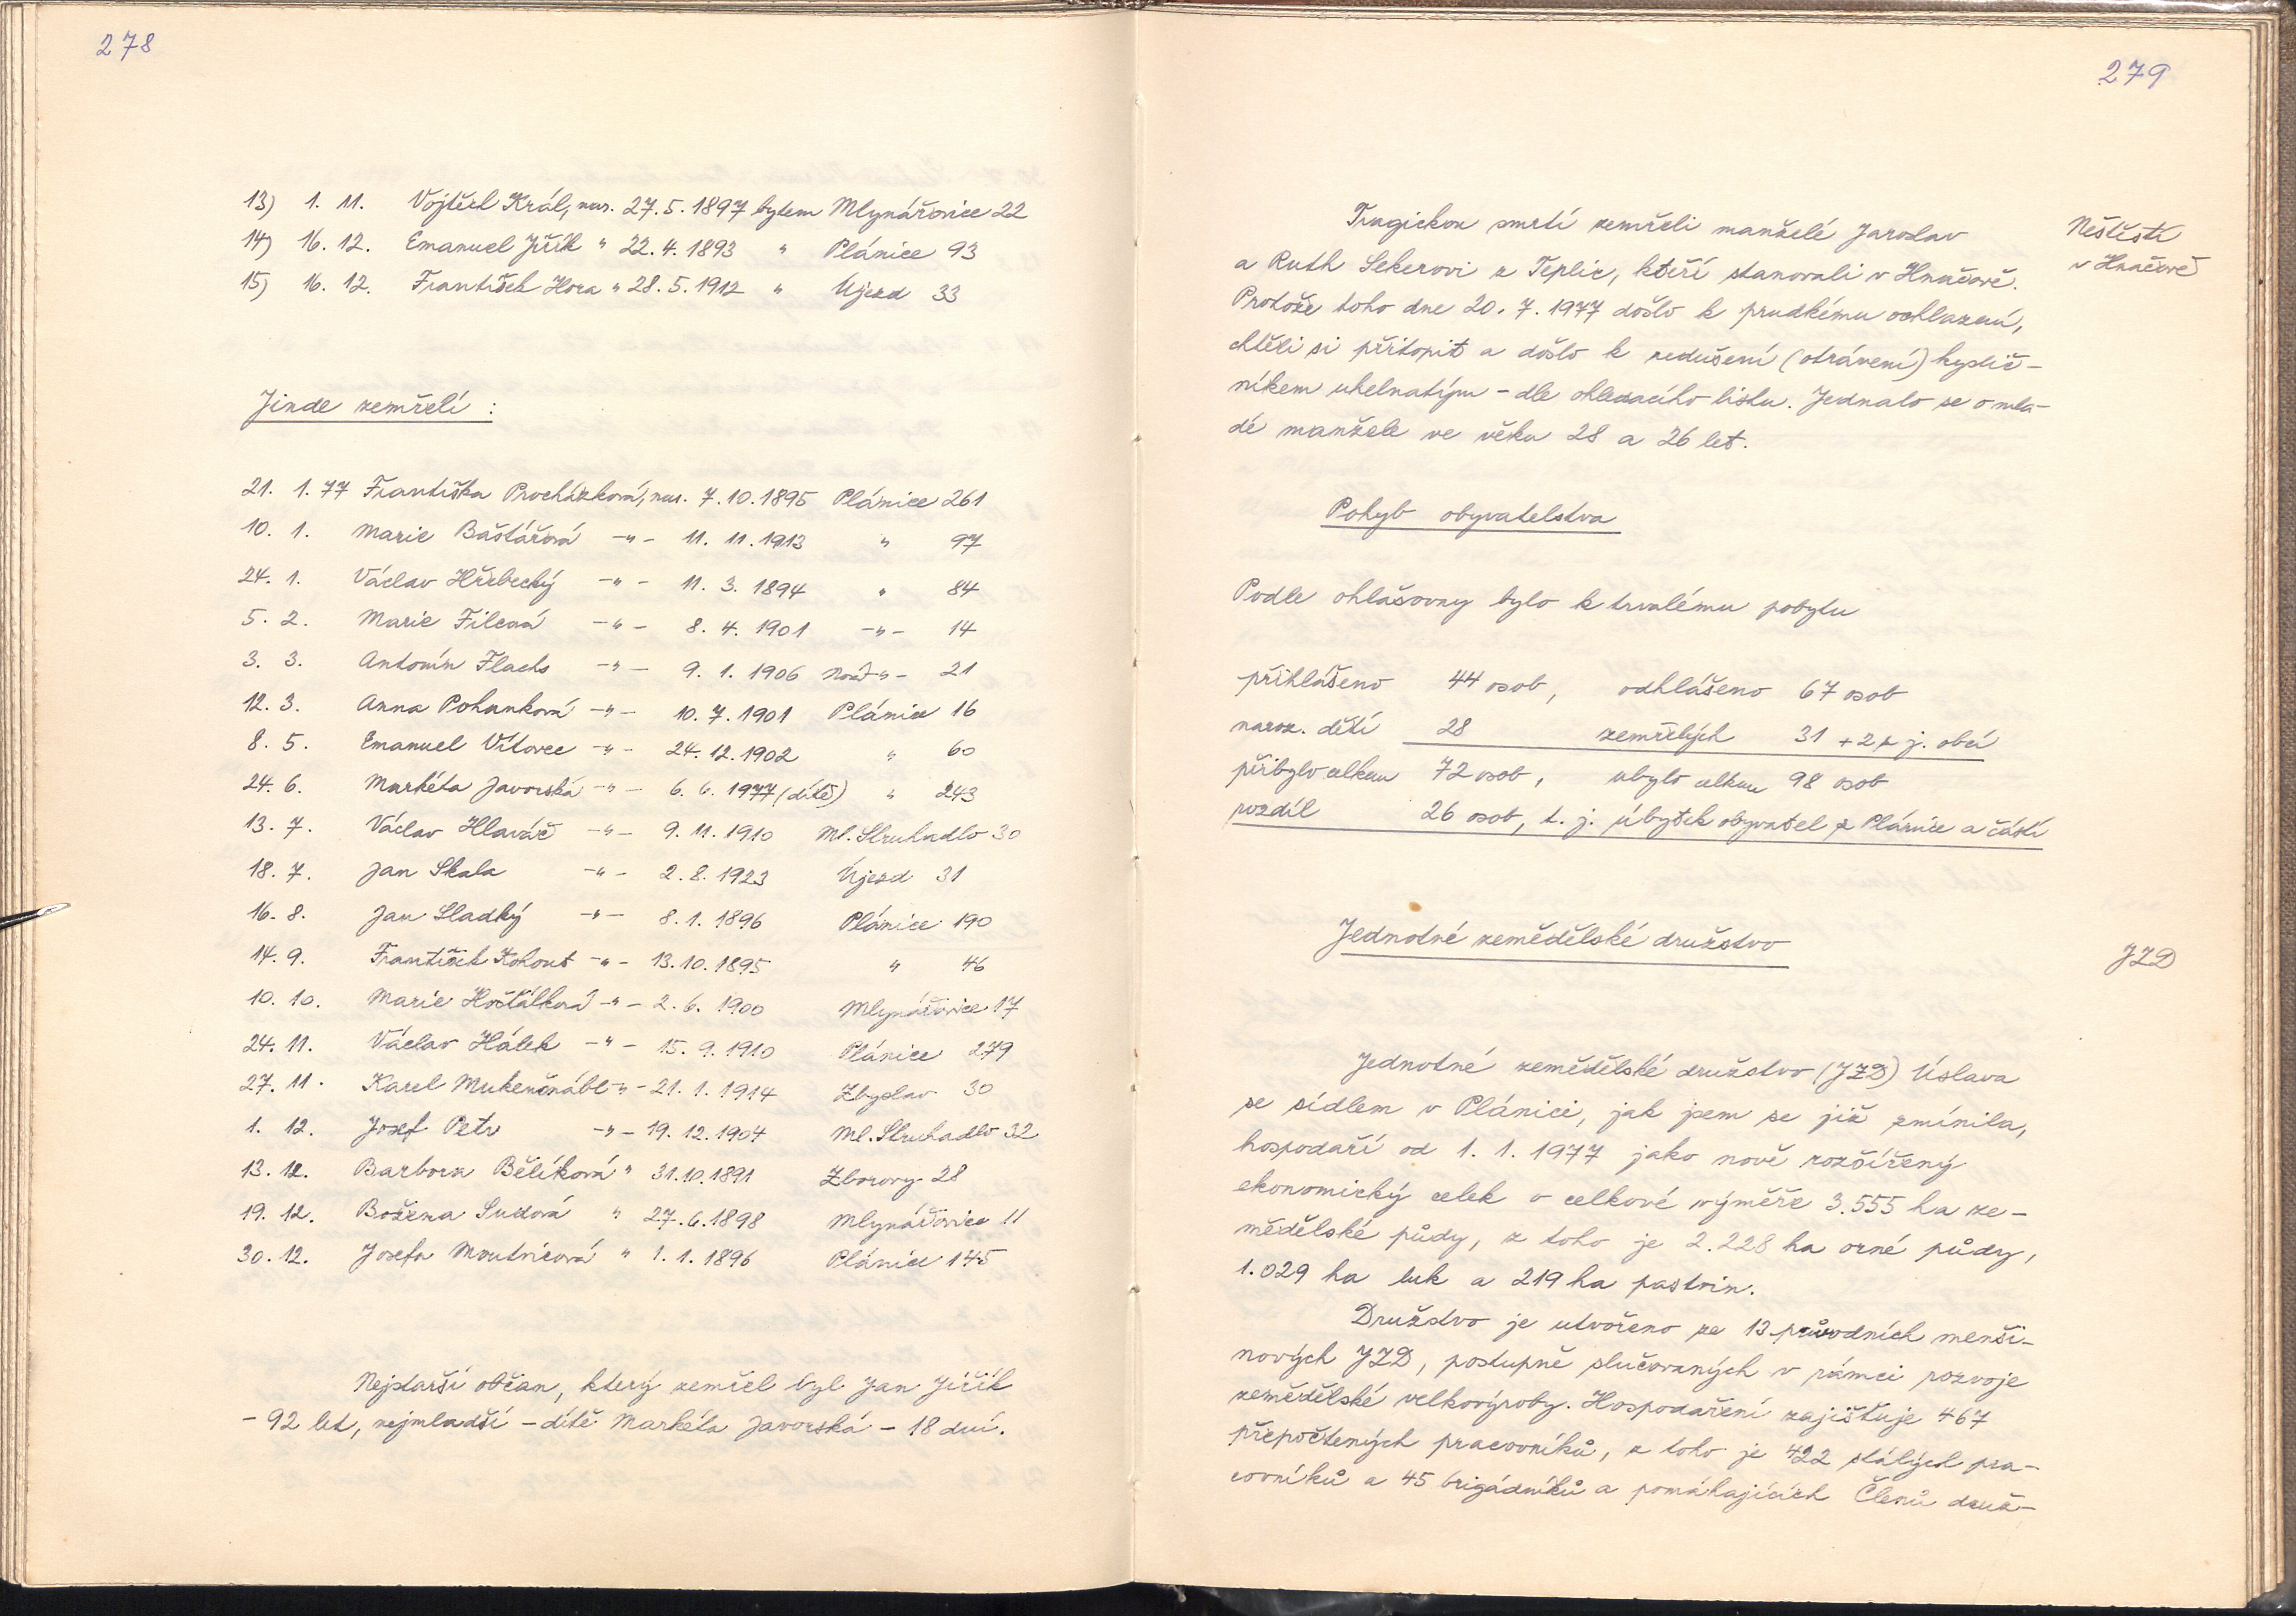 278
13) 1. 11. Vojtěch Král, nar. 27.5.1897 bytem Mlynářovice 22
14) 16. 12. Emanuel Jiřík " 22.4.1893 " Plánice 93
15) 16. 12. František Hora " 28.5.1912 " Újezd 33
Jinde zemřelí :
21. 1.77 Františka Procházková, nar. 7.10.1895 Plánice 261
10. 1. Marie Baštářová -"- 11. 11.1913 " 97
24. 1. Václav Hřebecký -"- 11. 3. 1894 " 84
5. 2. Marie Filcová -"- 8. 4. 1901 -"- 14
3. 3. Antonín Flachs -"- 9. 1. 1906 -"- 21
12. 3. Anna Pohanková -"- 10. 7. 1901 Plánice 16
8. 5. Emanuel Vítovec -"- 24.12.1902 " 60
24. 6. Markéta Javorská -"- 6. 6. 1977 (dítě) " 243
13. 7. Václav Hlaváč -"- 9. 11. 1910 Ml. Struhadlo 30
18. 7. Jan Skala -"- 2. 8. 1923 Újezd 31
16. 8. Jan Sladký -"- 8. 1. 1896 Plánice 190
14. 9. František Kohout -"- 13.10.1895 " 46
10. 10. Marie Hošťálková -"- 2. 6. 1900 Mlynářovice 17
24. 11. Václav Hálek -"- 15. 9. 1910 Plánice 279
27. 11. Karel Mukenšnábl -"- 21. 1. 1914 Zbyslav 30
1. 12. Josef Petr -"- 19. 12.1904 Ml. Struhadlo 32
13. 12. Barbora Bělíková " 31.10.1891 Zborovy 28
19. 12. Božena Sudová " 27.6.1898 Mlynářovice 11
30. 12. Josefa Moutvicová " 1. 1. 1896 Plánice 145
Nejstarší občan, který zemřel byl Jan Jiřík
- 92 let, nejmladší - dítě Markéta Javorská - 18 dní.
279
Neštěstí
v Hnačově
Tragickou smrtí zemřeli manželé Jaroslav
a Ruth Sekerovi z Teplic, kteří stanovali v Hnačově.
Protože toho dne 20. 7. 1977 došlo k prudkému ochlazení,
chtěli si přitopit a došlo k zadušení (otrávení) kyslič-
níkem uhelnatým - dle ohledacího listu. Jednalo se o mla-
dé manžele ve věku 28 a 26 let.
Pohyb obyvatelstva
Podle ohlašovny bylo k trvalému pobytu
přihlášeno 44 osob, odhlášeno 67 osob
naroz. dětí 28 zemřelých 31 + 2 z j. obcí
přibylo celkem 72 osob, ubylo celkem 98 osob
rozdíl 26 osob, t. j. úbytek obyvatel z Plánice a částí
Jednotné zemědělské družstvo
JZD
Jednotné zemědělské družstvo (JZD) Úslava
se sídlem v Plánici, jak jsem se již zmínila,
hospodaří od 1. 1. 1977 jako nově rozšířený
ekonomický celek o celkové výměře 3.555 ha ze-
mědělské půdy, z toho je 2.228 ha orné půdy,
1.029 ha luk a 219 ha pastvin.
Družstvo je utvořeno ze 13 původních menši-
nových JZD, postupně slučovaných v rámci rozvoje
zemědělské velkovýroby. Hospodaření zajišťuje 467
přepočtených pracovníků, z toho je 422 stálých pra-
covníků a 45 brigádníků a pomáhajících členů druž-